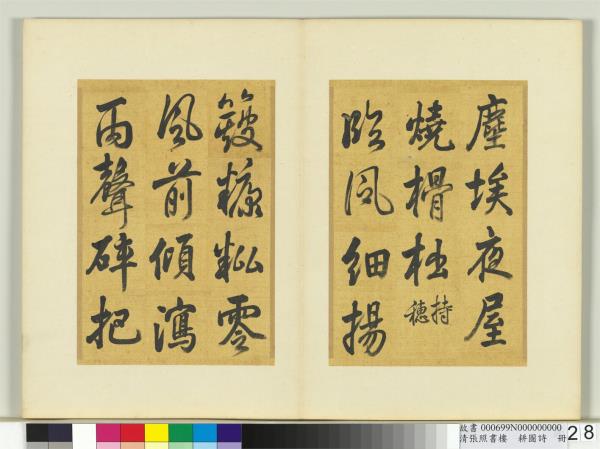 塵埃夜屋
燒榾柮 持穗
臨風細揚
簸糠粃零
風前傾瀉
雨聲碎把
故書 000699N000000000
清張照書樓 耕圖詩 冊
28